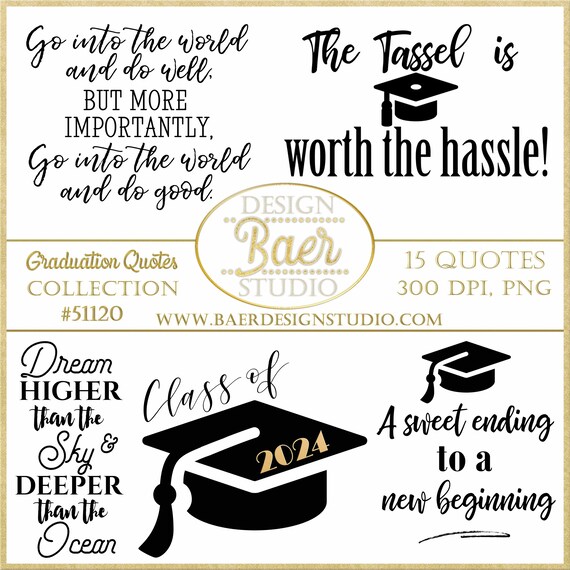 Go into the world
and do well;
BUT MORE
IMPORTANTLY,
Go into the world
and do good.
The Tassel is
worth the hassle!
DESIGN
Baer
STUDIO
Graduation Quotes
COLLECTION
#51120
15 QUOTES
300 DPI, PNG
WWW.BAERDESIGNSTUDIO.COM
Dream
HIGHER
than the
Sky &
DEEPER
than the
Ocean
Class of
2024
A sweet ending
to a
new beginning